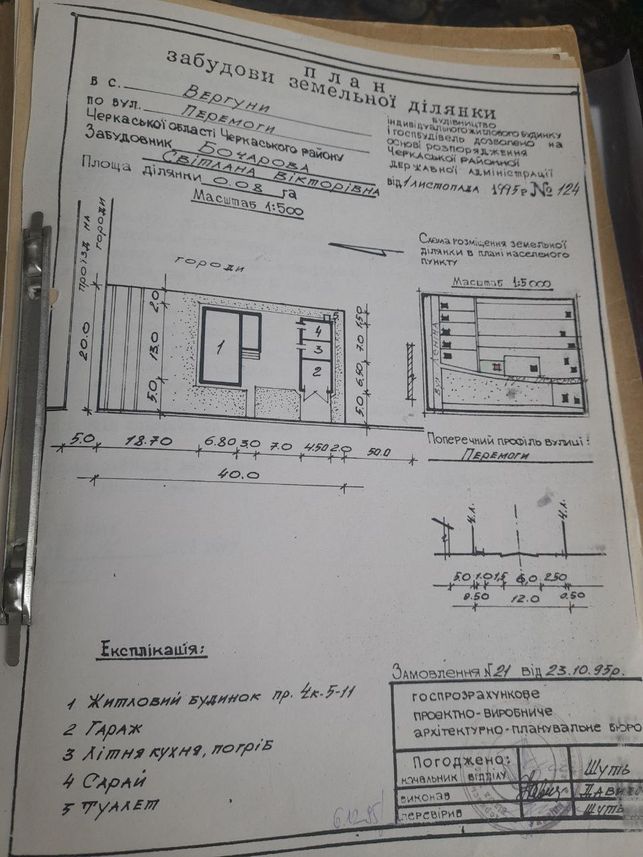 ПЛАН
забудови земельної ділянки
в с. Вергуни
по вул. Перемоги
Черкаської області Черкаського району
Забудовник Бочарова
Світлана Вікторівна
Площа ділянки 0.08 га
Масштаб 1:500
Будівництво
індивідуального житлового будинку
і госпбудівель дозволено на
основі розпорядження
Черкаської районної
державної адміністрації
від 1 листопада 1995р №124
проїзд на
городи
городи
20.0
2.0
13.0
5.0
1
4
3
2
5
1.50
7.0
6.50
5.0
5.0 18.70 6.80 3.0 7.0 4.50 2.0 50.0
40.0
Схема розміщення земельної
ділянки в плані населеного
пункту
Масштаб 1:5000
Поперечний профіль вулиці:
Перемоги
ч.л.
ч.л.
5.0 1.0 1.5 6.0 2.50
0.50 12.0 0.50
Експлікація:
1 Житловий будинок пр. 4к-5-11
2 Гараж
3 Літня кухня, погріб
4 Сарай
5 Туалет
Замовлення №21 від 23.10.95р.
госпрозрахункове
проектно-виробниче
архітектурно-планувальне бюро
Погоджено:
начальник відділу Шуть
виконав
перевірив Шуть
6.12.95